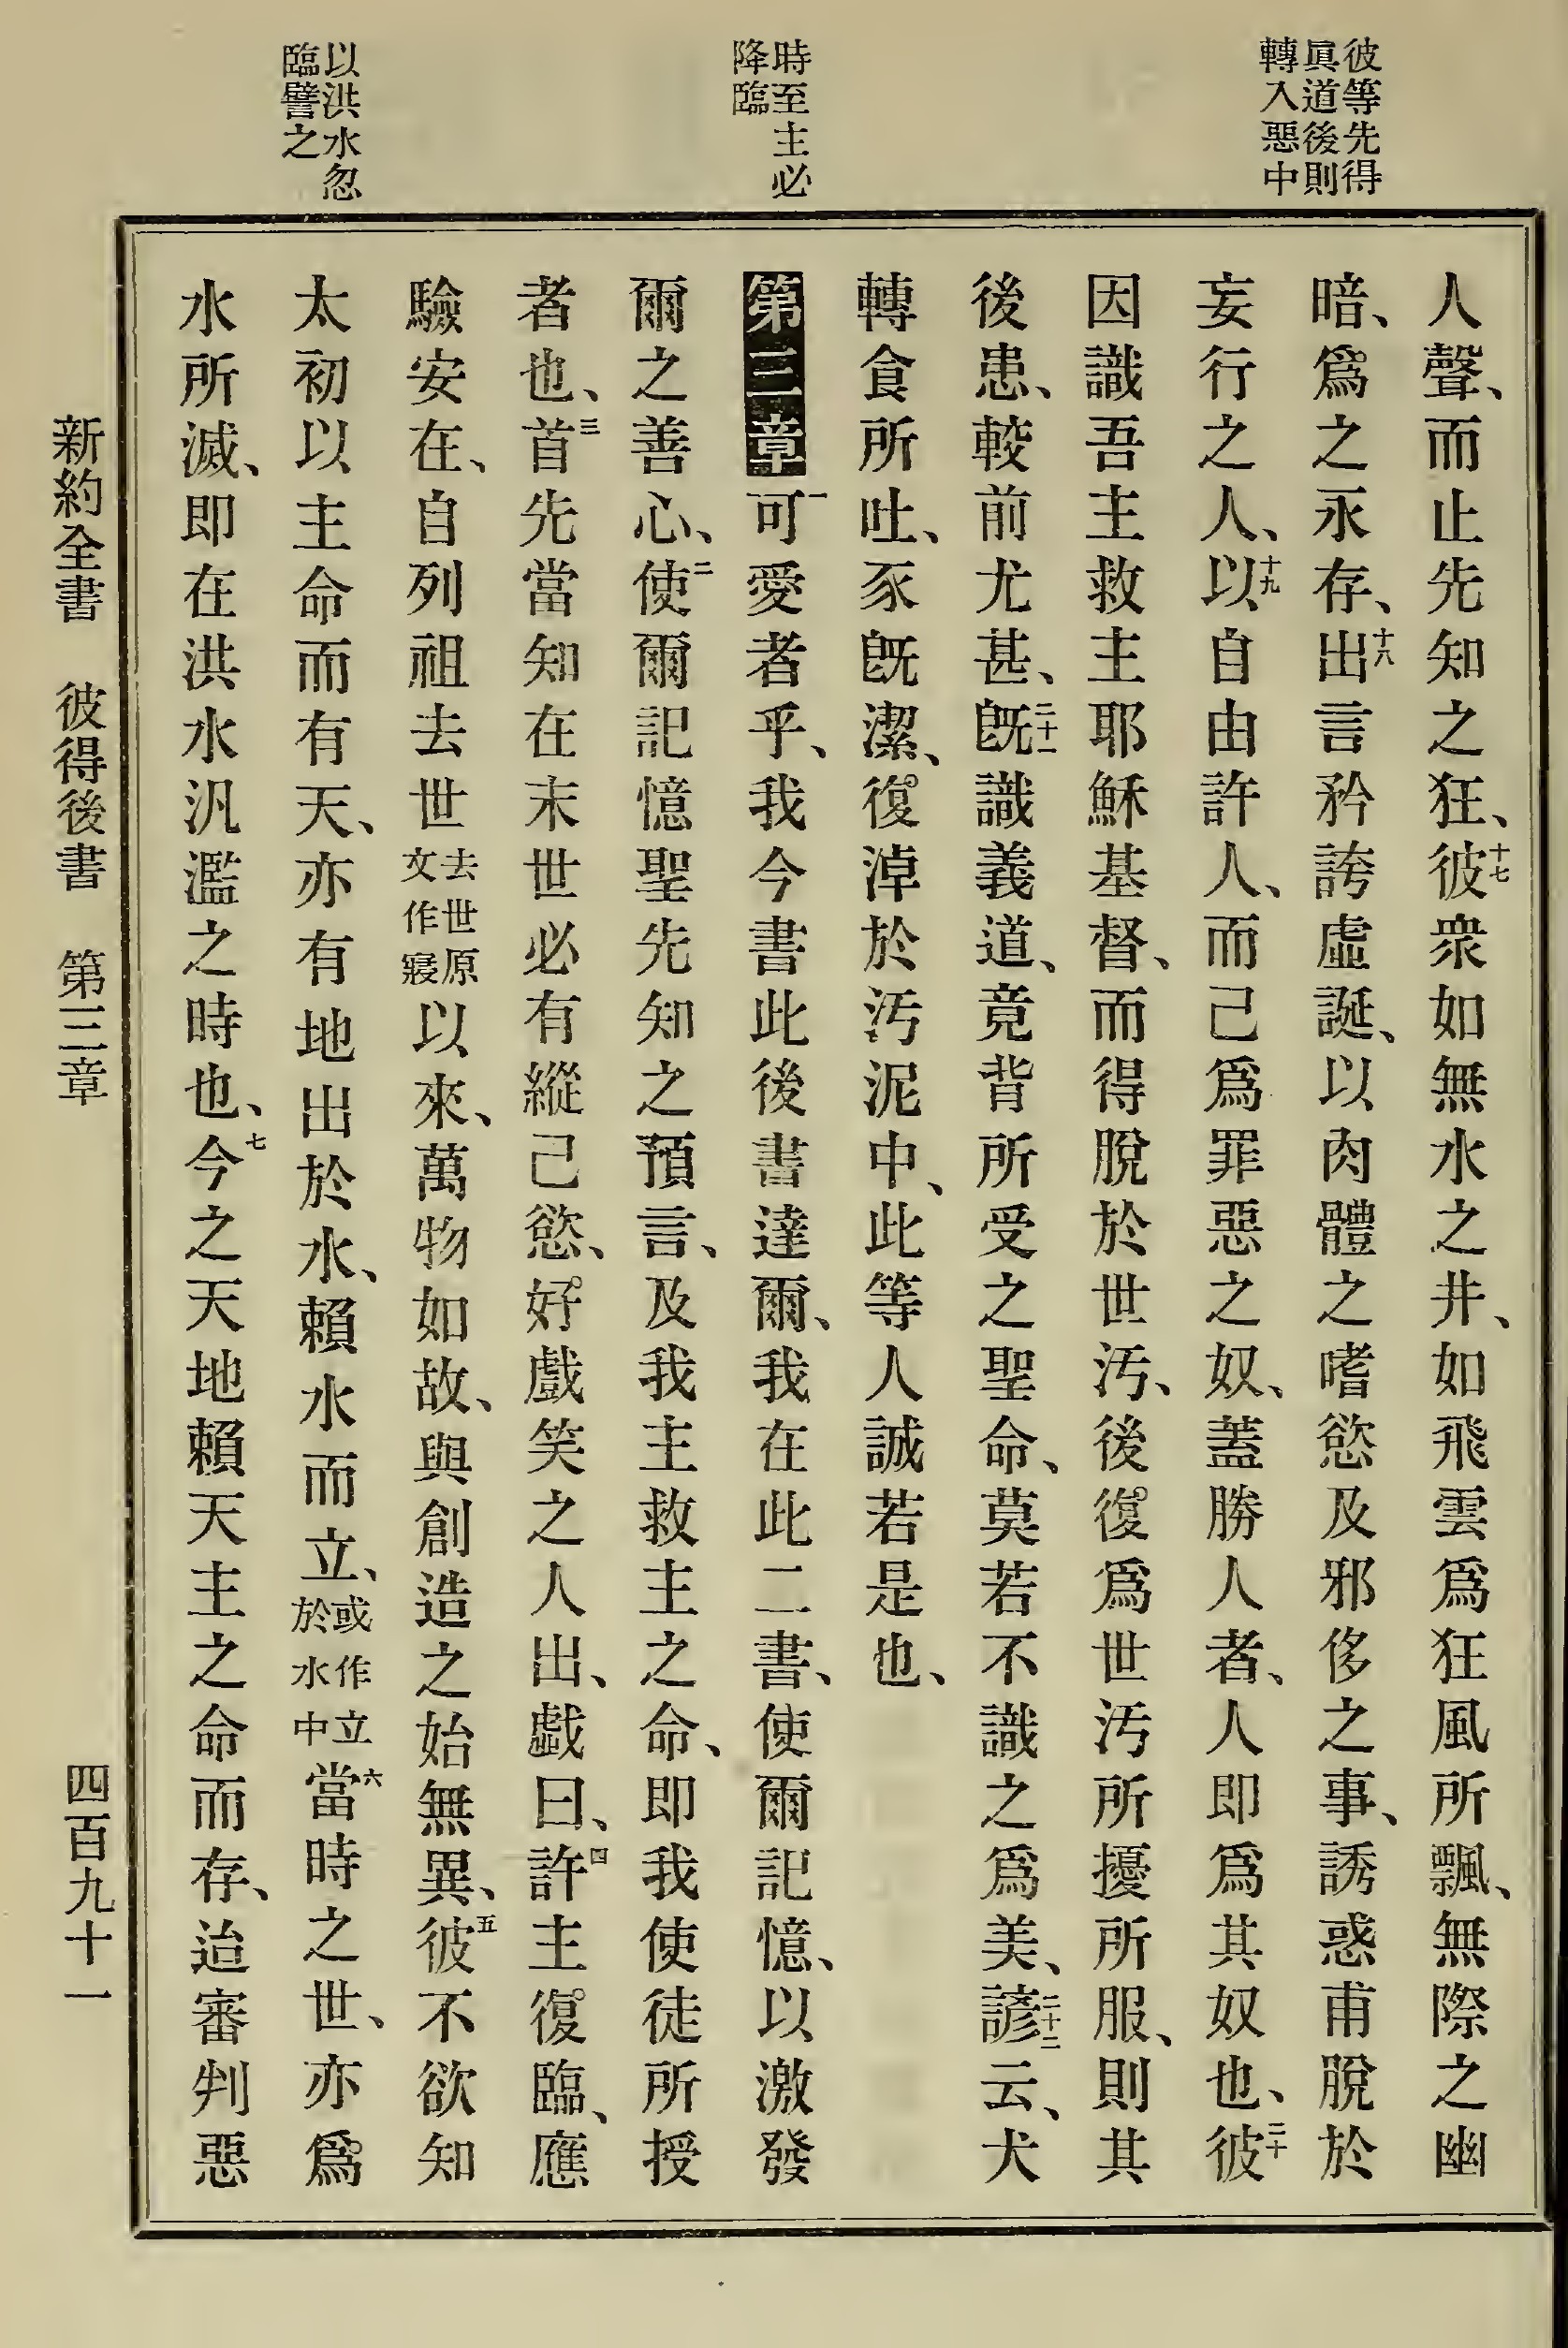 彼等先得
眞道後則
轉入惡中
時至主必
降臨
以洪水忽
臨譬之
人聲、而止先知之狂、十七彼衆如無水之井、如飛雲爲狂風所飄、無際之幽
暗、爲之永存、十八出言矜誇虛誕、以肉體之嗜慾及邪侈之事、誘惑甫脫於
妄行之人、十九以自由許人、而己爲罪惡之奴、蓋勝人者、人即爲其奴也、二十彼
因識吾主救主耶穌基督、而得脫於世汚、後復爲世汚所擾所服、則其
後患、較前尤甚、二十一旣識義道、竟背所受之聖命、莫若不識之爲美、二十二諺云、犬
轉食所吐、豕旣潔、復淖於汚泥中、此等人誠若是也、
第三章一可愛者乎、我今書此後書達爾、我在此二書、使爾記憶、以激發
爾之善心、二使爾記憶聖先知之預言、及我主救主之命、即我使徒所授
者也、三首先當知在末世必有縱己慾、好戲笑之人出、戲曰、四許主復臨、應
驗安在、自列祖去世去世原文作寢以來、萬物如故、與創造之始無異、五彼不欲知
太初以主命而有天、亦有地出於水、賴水而立、或作立於水中六當時之世、亦爲
水所滅、即在洪水汎濫之時也、七今之天地賴天主之命而存、迨審判惡
新約全書 彼得後書 第三章 四百九十一